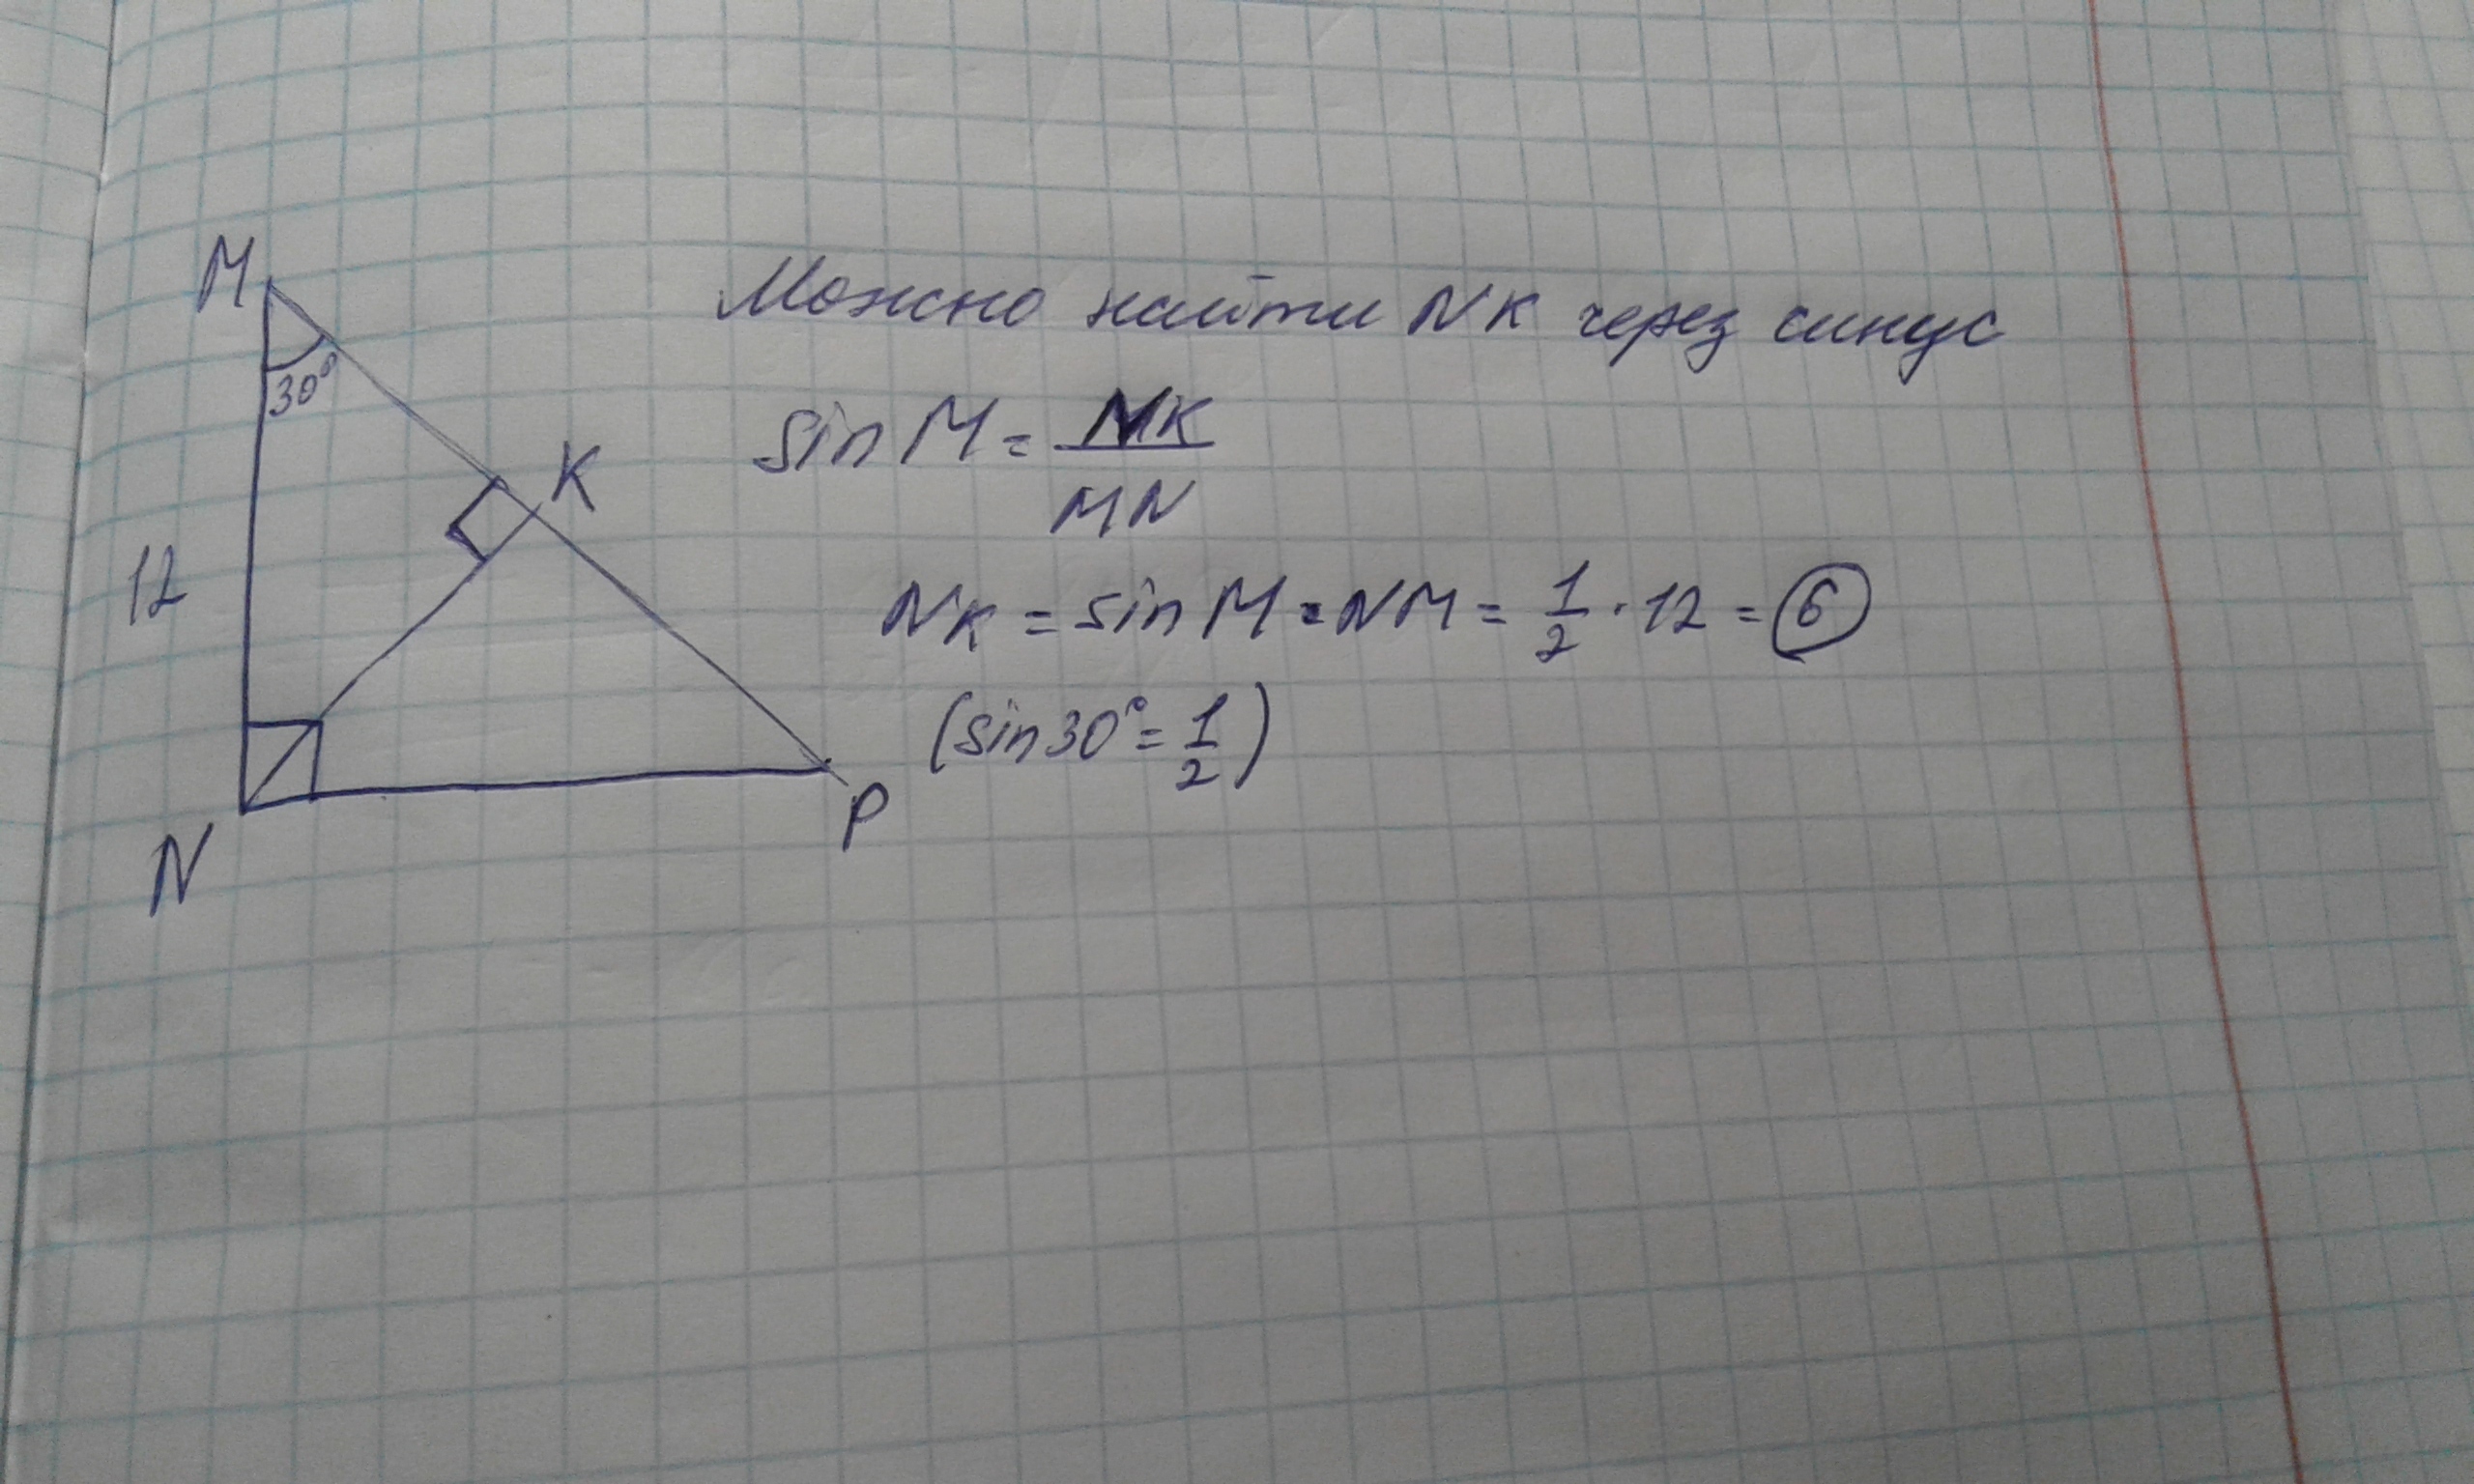 M
30°
K
12
N
P
Можно найти NK через синус
sin M = NK / MN
NK = sin M · NM = 1/2 · 12 = 6
(sin 30° = 1/2)